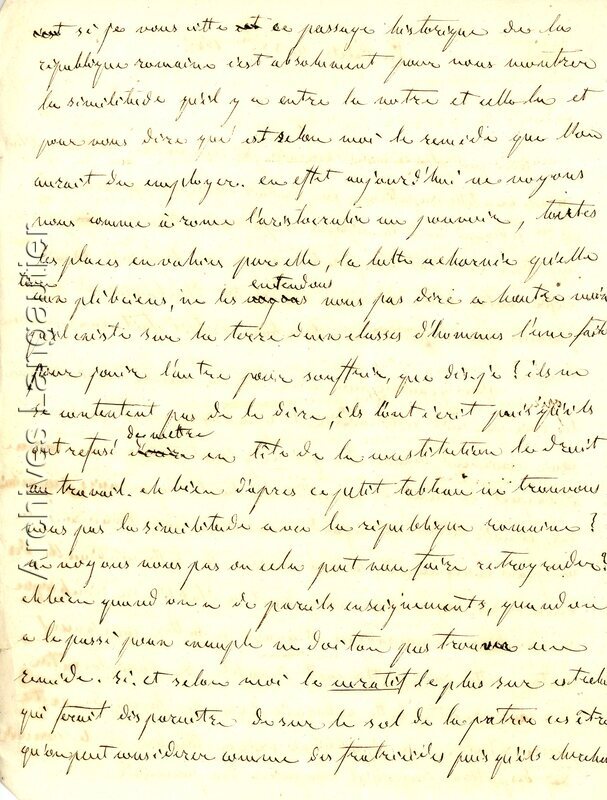 si je vous citte ce passage historique de la
république romaine c'est absolument pour vous montrer
la similitude qu'il y a entre la notre et cella la et
pour vous dire qu'el est selon moi le remède que l'on
aurait du employer. en effet aujourd'hui ne voyons
nous comme à rome l'aristocratie au pouvoir, toutes
les places envahies par elle, la lutte acharnée qu'elle
livre aux plébeiens, ne les entendons nous pas dire a haute voix
qu'il existe sur la terre deux classes d'hommes l'une faite
pour jouir l'autre pour souffrir, que dis-je? ils ne
se contentent pas de le dire, ils l'ont écrit puisqu'ils
ont refusé de mettre en tête de la constitution le droit
au travail. eh bien d'apres ce petit tableau ne trouvons
nous pas la similitude avec la république romaine?
ne voyons nous pas ou cela peut nous faire retrograder?
eh bien quand on a de pareils enseignements, quand on
a le passé pour exemple ne doit on pas trouver un
remède. si. et selon moi le curatif le plus sur est celui
qui ferait disparaître de sur le sol de la patrie ces êtres
qu'on peut considerer comme des fratricides puis qu'ils cherchent
Archives Langaulier